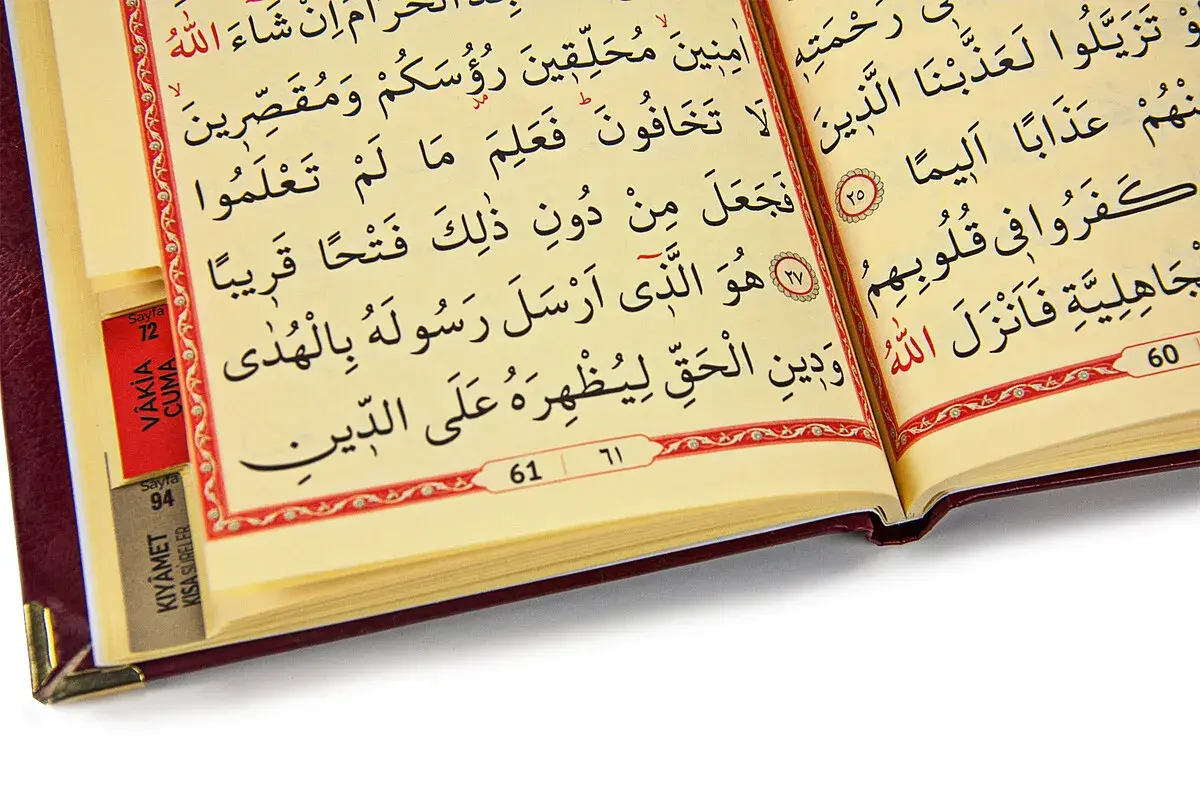 رَحْمَتِه۪
تَزَيَّلُوا لَعَذَّبْنَا الَّذ۪ينَ
عَذَابًا اَل۪يمًا ٢٥
كَفَرُوا ف۪ى قُلُوبِهِمُ
جَاهِلِيَّةِ فَاَنْزَلَ اللّٰهُ
60
الْحَرَامَ اِنْ شَٓاءَ اللّٰهُ
اٰمِن۪ينَۙ مُحَلِّق۪ينَ رُؤُ۫سَكُمْ وَمُقَصِّر۪ينَۙ
لَا تَخَافُونَۜ فَعَلِمَ مَا لَمْ تَعْلَمُوا
فَجَعَلَ مِنْ دُونِ ذٰلِكَ فَتْحًا قَر۪يبًا
٢٧ هُوَ الَّذ۪ٓى اَرْسَلَ رَسُولَهُ بِالْهُدٰى
وَد۪ينِ الْحَقِّ لِيُظْهِرَهُ عَلَى الدّ۪ينِ
61 | ٦١
Sayfa
72
VÂKİA
CUMA
Sayfa
94
KIYÂMET
KISA SÛRELER